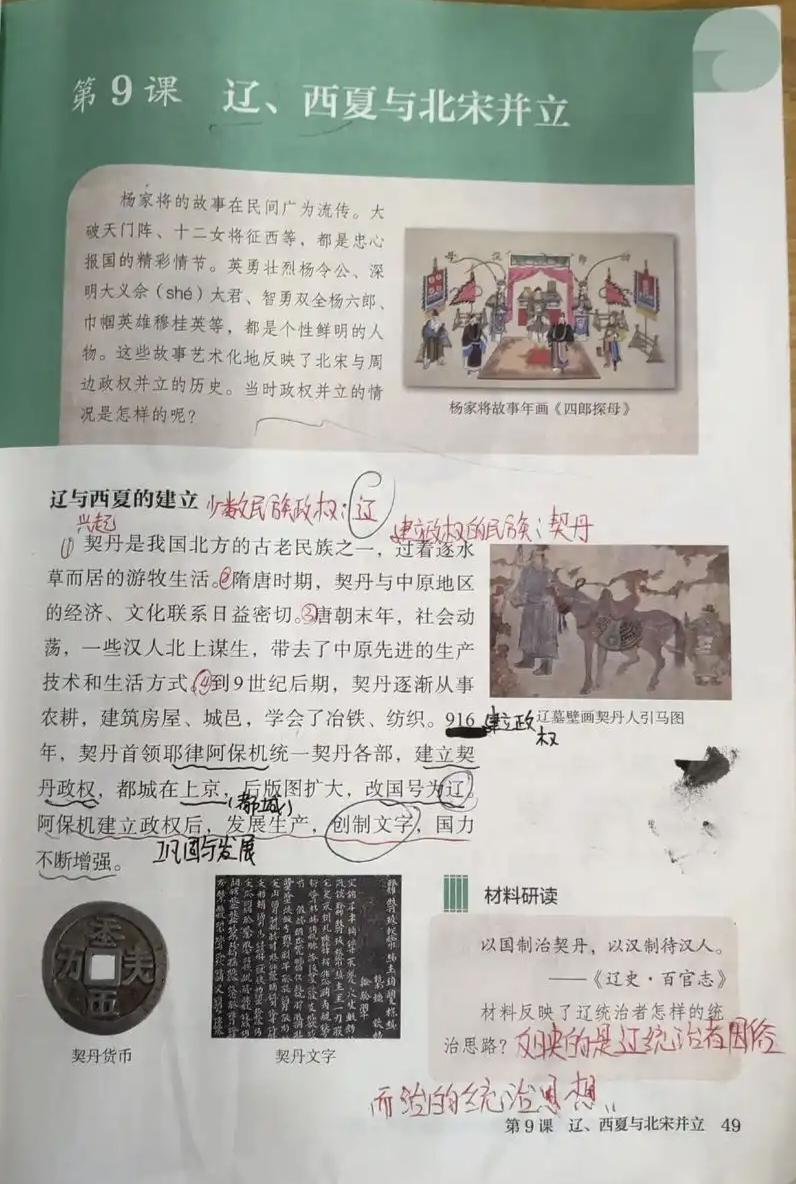 第9课 辽、西夏与北宋并立
杨家将的故事在民间广为流传。大
破天门阵、十二女将征西等，都是忠心
报国的精彩情节。英勇壮烈杨令公、深
明大义佘（shé）太君、智勇双全杨六郎、
巾帼英雄穆桂英等，都是个性鲜明的人
物。这些故事艺术化地反映了北宋与周
边政权并立的历史。当时政权并立的情
况是怎样的呢？
杨家将故事年画《四郎探母》
辽与西夏的建立 少数民族政权：辽
兴起
建立政权的民族：契丹
① 契丹是我国北方的古老民族之一，过着逐水
草而居的游牧生活。②隋唐时期，契丹与中原地区
的经济、文化联系日益密切。③唐朝末年，社会动
荡，一些汉人北上谋生，带去了中原先进的生产
技术和生活方式。④到9世纪后期，契丹逐渐从事
农耕，建筑房屋、城邑，学会了冶铁、纺织。916
建立政
权
年，契丹首领耶律阿保机统一契丹各部，建立契
丹政权，都城在上京，后版图扩大，改国号为辽。
（都城）
阿保机建立政权后，发展生产，创制文字，国力
不断增强。
巩固与发展
辽墓壁画契丹人引马图
契丹货币
契丹文字
材料研读
以国制治契丹，以汉制待汉人。
——《辽史·百官志》
材料反映了辽统治者怎样的统
治思路？反映的是辽统治者因俗
而治的统治思想。
第9课 辽、西夏与北宋并立 49